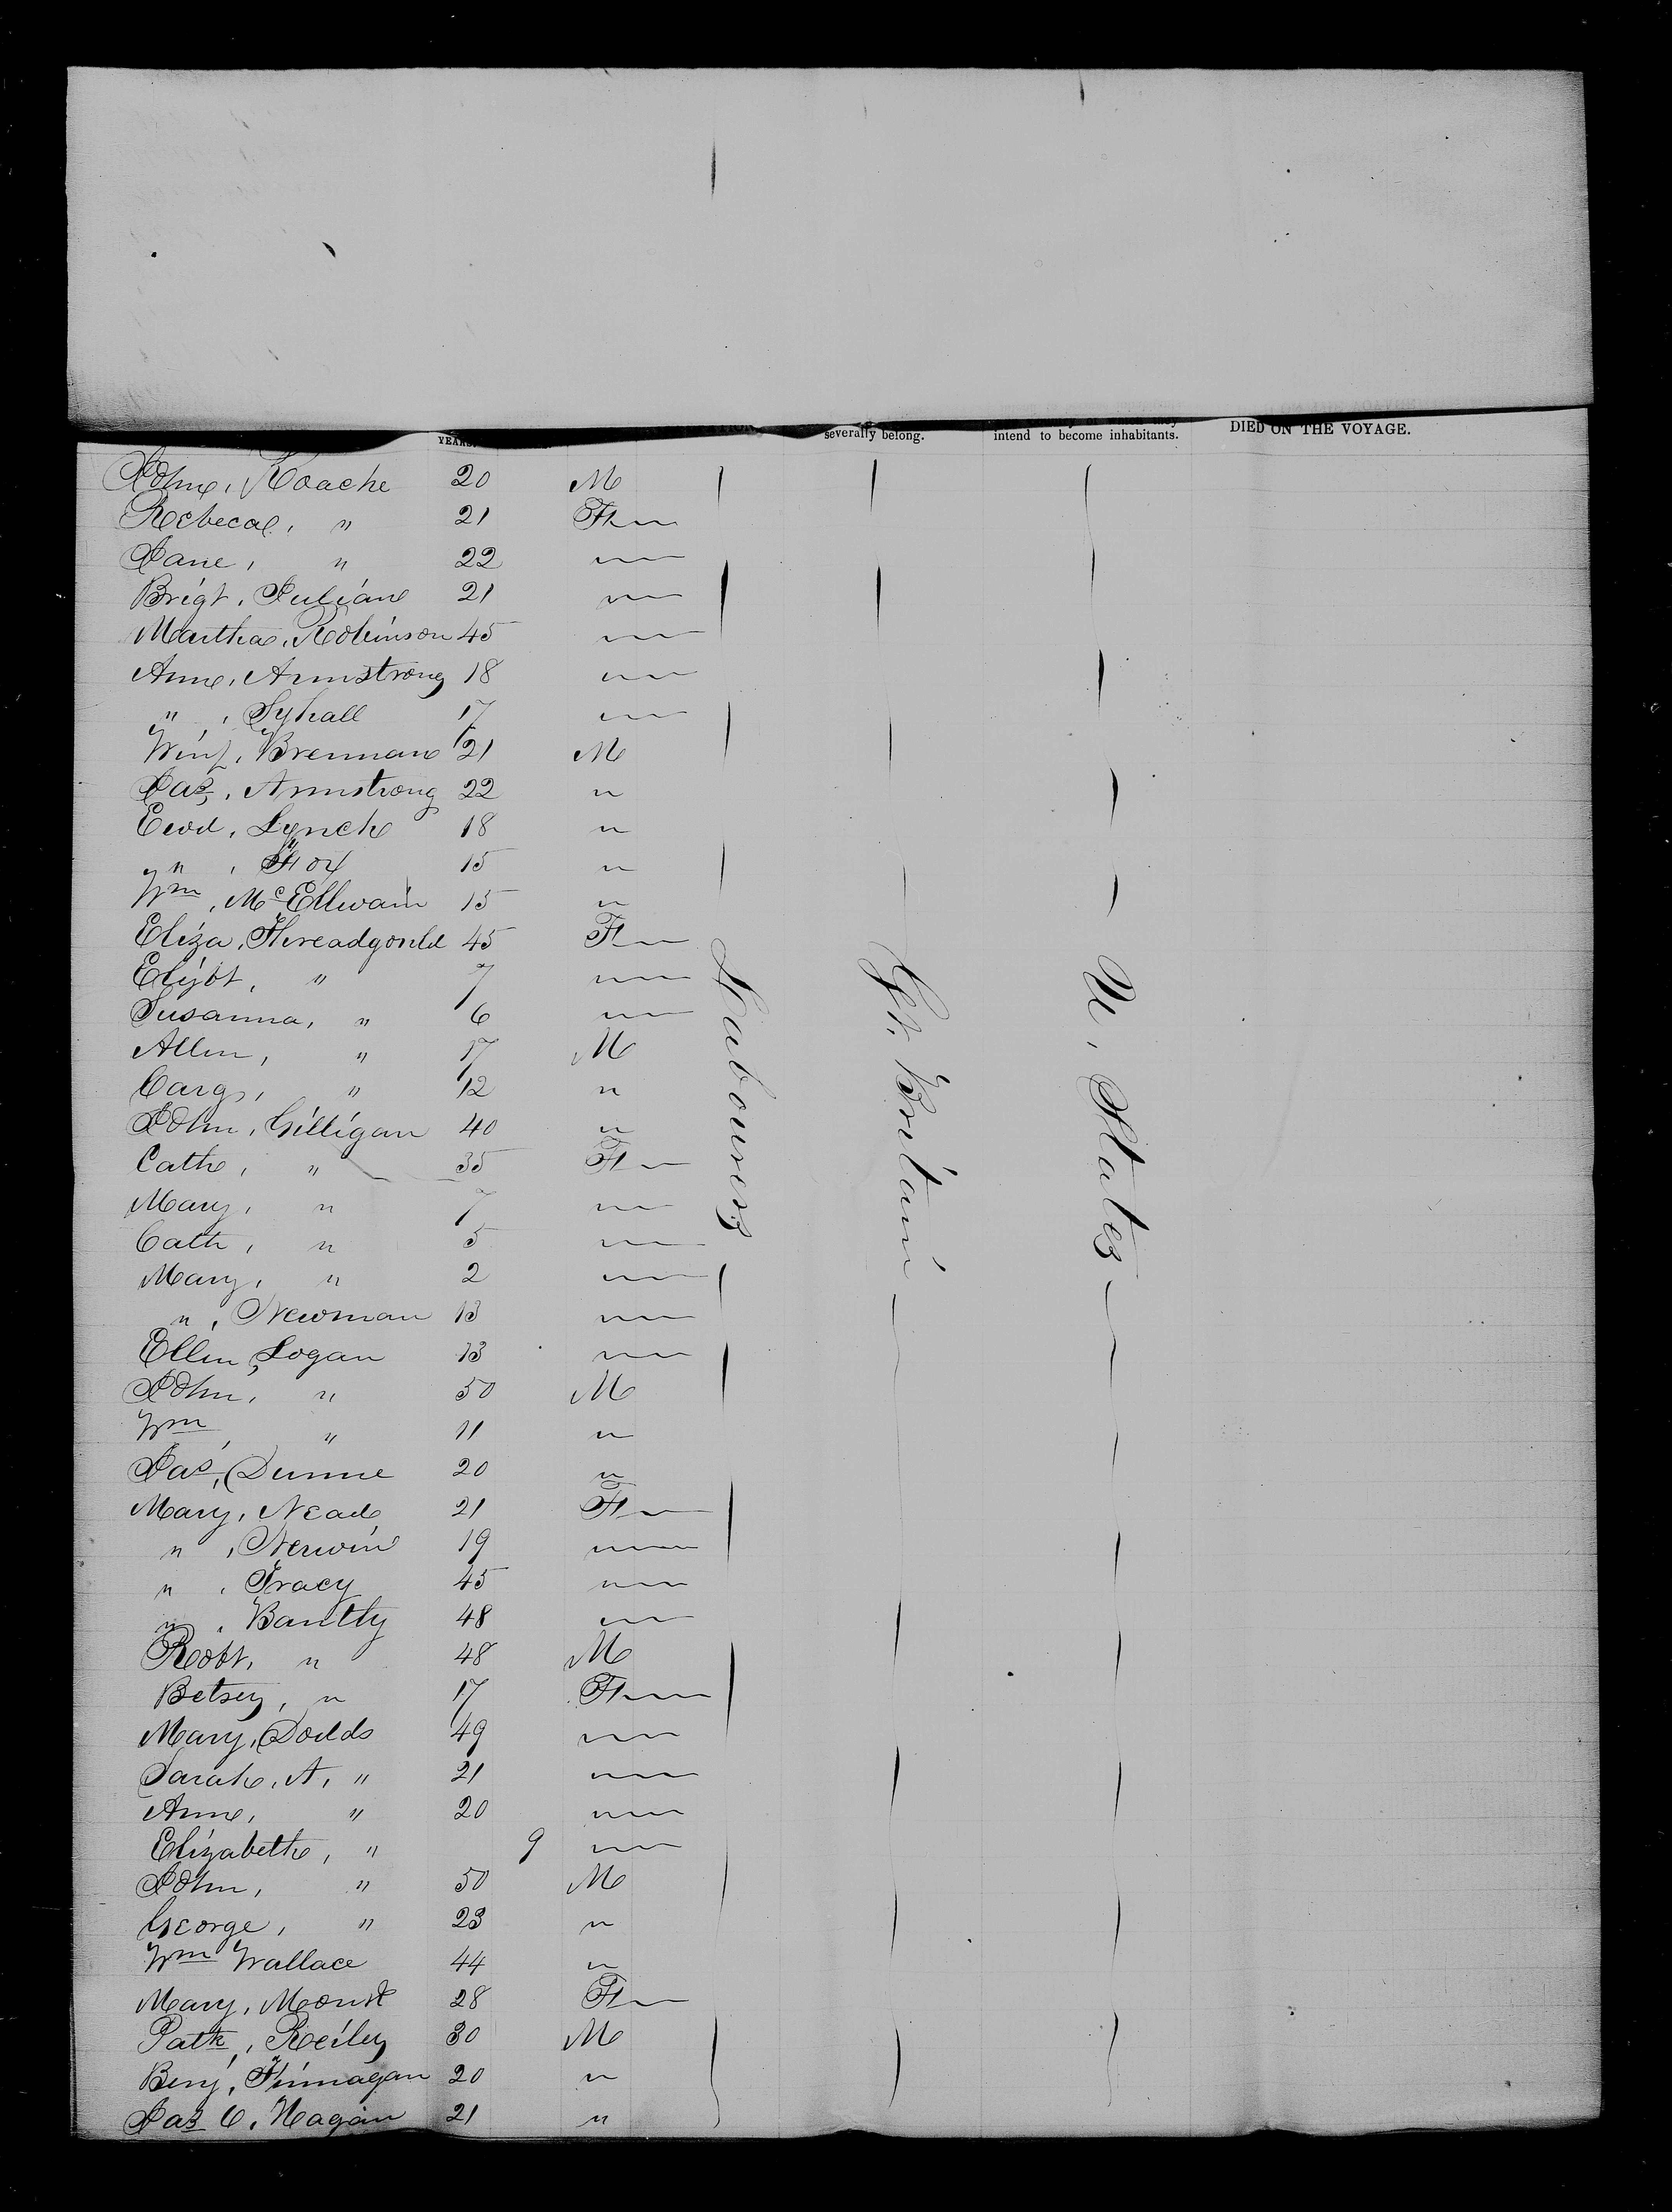 YEARS. severally belong. intend to become inhabitants. DIED ON THE VOYAGE.
John, Roache 20 M
Rebeca, " 21 F
Jane, " 22 "
Brigt, Julian 21 "
Martha, Robinson 45 "
Anne, Armstrong 18 "
" , Syhall 17 "
Winf, Brennan 21 M
Jas, Armstrong 22 "
Ewd, Lynch 18 "
" , Fox 15 "
Wm, McEllwain 15 "
Eliza, Threadgould 45 F
Elizbt, " 7 "
Susanna, " 6 "
Allen, " 17 M
Cargs, " 12 "
John, Gilligan 40 "
Cath, " 35 F
Mary, " 7 "
Cath, " 5 "
Mary, " 2 "
" , Newman 13 "
Ellen, Logan 13 "
John, " 50 M
Wm, " 11 "
Jas, Dunne 20 "
Mary, Neade 21 F
" , Nerwin 19 "
" , Tracy 45 "
" , Bantly 48 "
Robt, " 48 M
Betsey, " 17 F
Mary, Dodds 49 "
Sarah, A, " 21 "
Anne, " 20 "
Elizabeth, " 9 "
John, " 50 M
George, " 23 "
Wm Wallace 44 "
Mary, 28 F
Patk, Reiley 30 M
Benj, Finnagan 20 "
Jas C, Hagan 21 "
Labourers
Gt. Britain
U. States